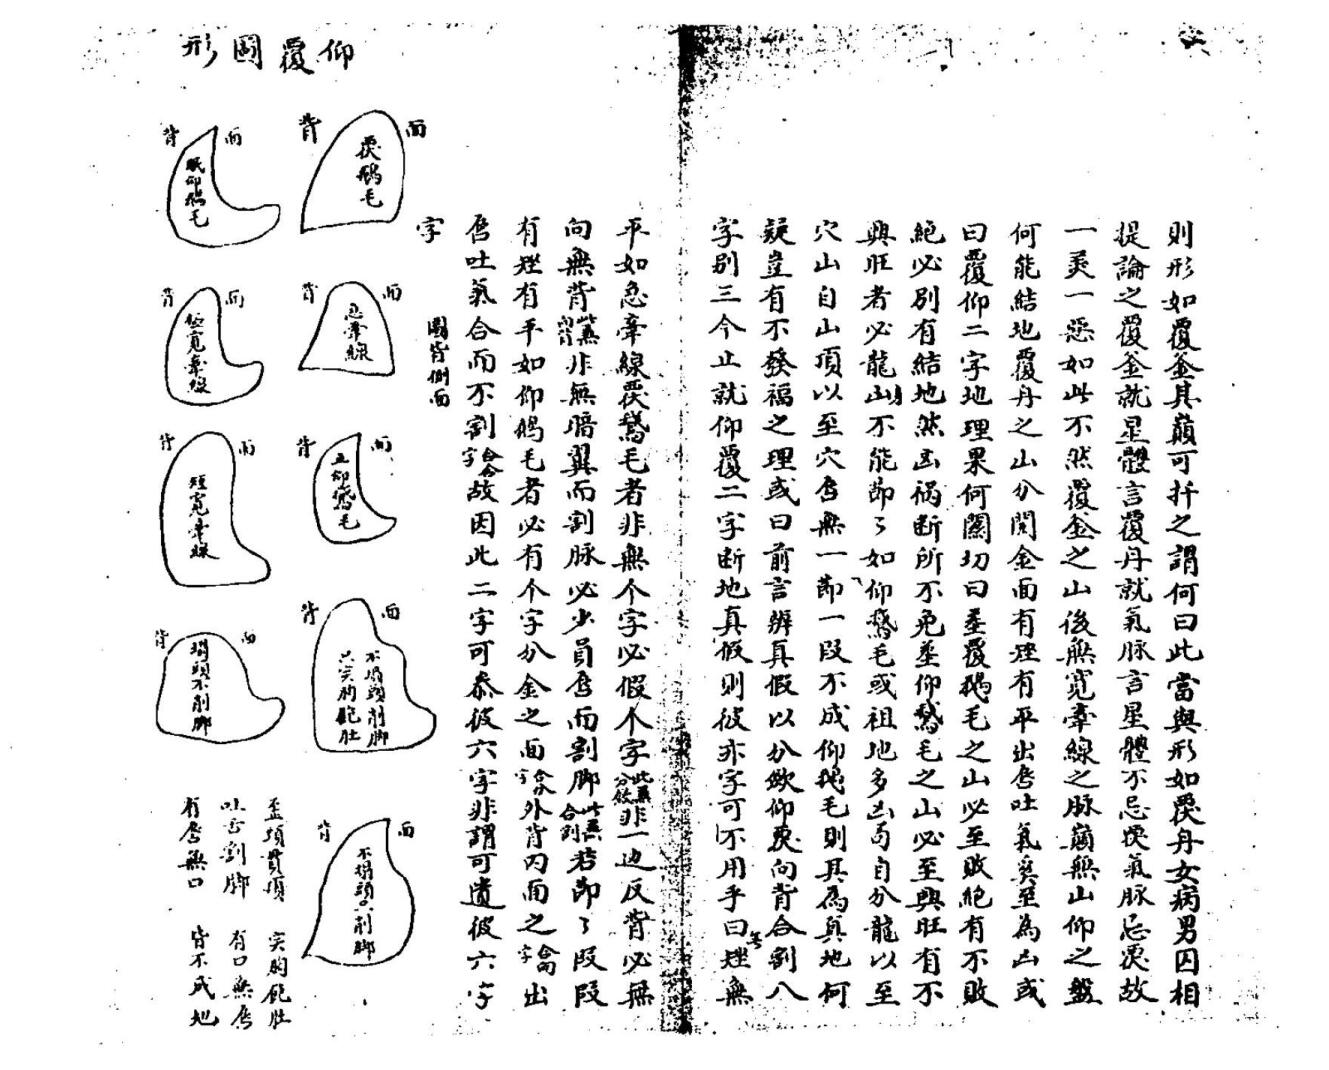 則形如覆釜其巔可扦之謂何曰此當與形如覆舟女病男囚相
提論之覆釜就星體言覆舟就氣脉言星體不忌覆氣脉忌覆故
一美一惡如此不然覆釜之山後無寬牽線之脉巔無山仰之盤
何能結地覆舟之山分開金面有𡋾有平出唇吐氣奚至為凶或
曰覆仰二字地理果何關切曰葢覆鵝毛之山必至敗絕有不敗
絕必别有結地然凶禍断所不免葢仰鵝毛之山必至興旺有不
興旺者必龍山不能節々如仰鵝毛或祖地多凶而自分龍以至
穴山自山頂以至穴唇無一節一段不成仰鵝毛則其為真地何
疑豈有不發福之理或曰前言辨真假以分歛仰覆向背合割八
字别三今止就仰覆二字断地真假則彼亦字可不用乎曰𡋾無
平如急牽線覆鵝毛者非無个字必假个字此無分歛非一边反背必無
向無背此無向背非無暗翼而割脉必少員唇而割脚此無合割若節々段段
有𡋾有平如仰鵝毛者必有个字分金之面合分字外背内面之合向字出
唇吐氣合而不割合合字故因此二字可叅彼六字非謂可遺彼六字
字
圖皆側面
仰覆圖形
面
背
覆鵝毛
面
背
急牽線
面
背
立仰鵝毛
面
背
不塌頭削脚
只突胸飽肚
面
背
不塌頭只削脚
面
背
眠仰鵝毛
面
背
極寬牽線
面
背
短寬牽線
面
背
塌頭不削脚
歪項貫頂 突胸飽肚
吐舌割脚 有口無唇
有唇無口 皆不成地